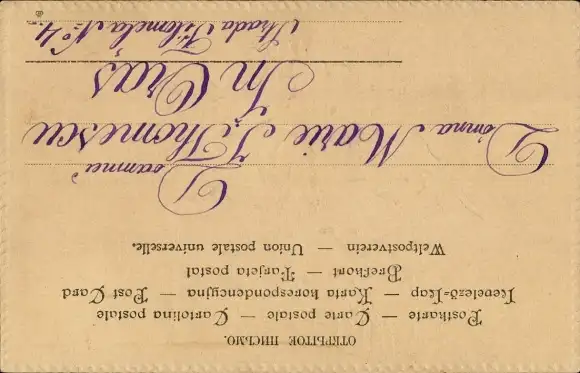 ОТКРЫТОЕ ПИСЬМО.
Postkarte — Carte postale — Cartolina postale
Levelező-Lap — Karta korespondencyjna — Post Card
Brefkort — Tarjeta postal
Weltpostverein — Union postale universelle.
Doamnei
Domna Marie I. Thomescu
In Oraș
Strada Filomela No 4.